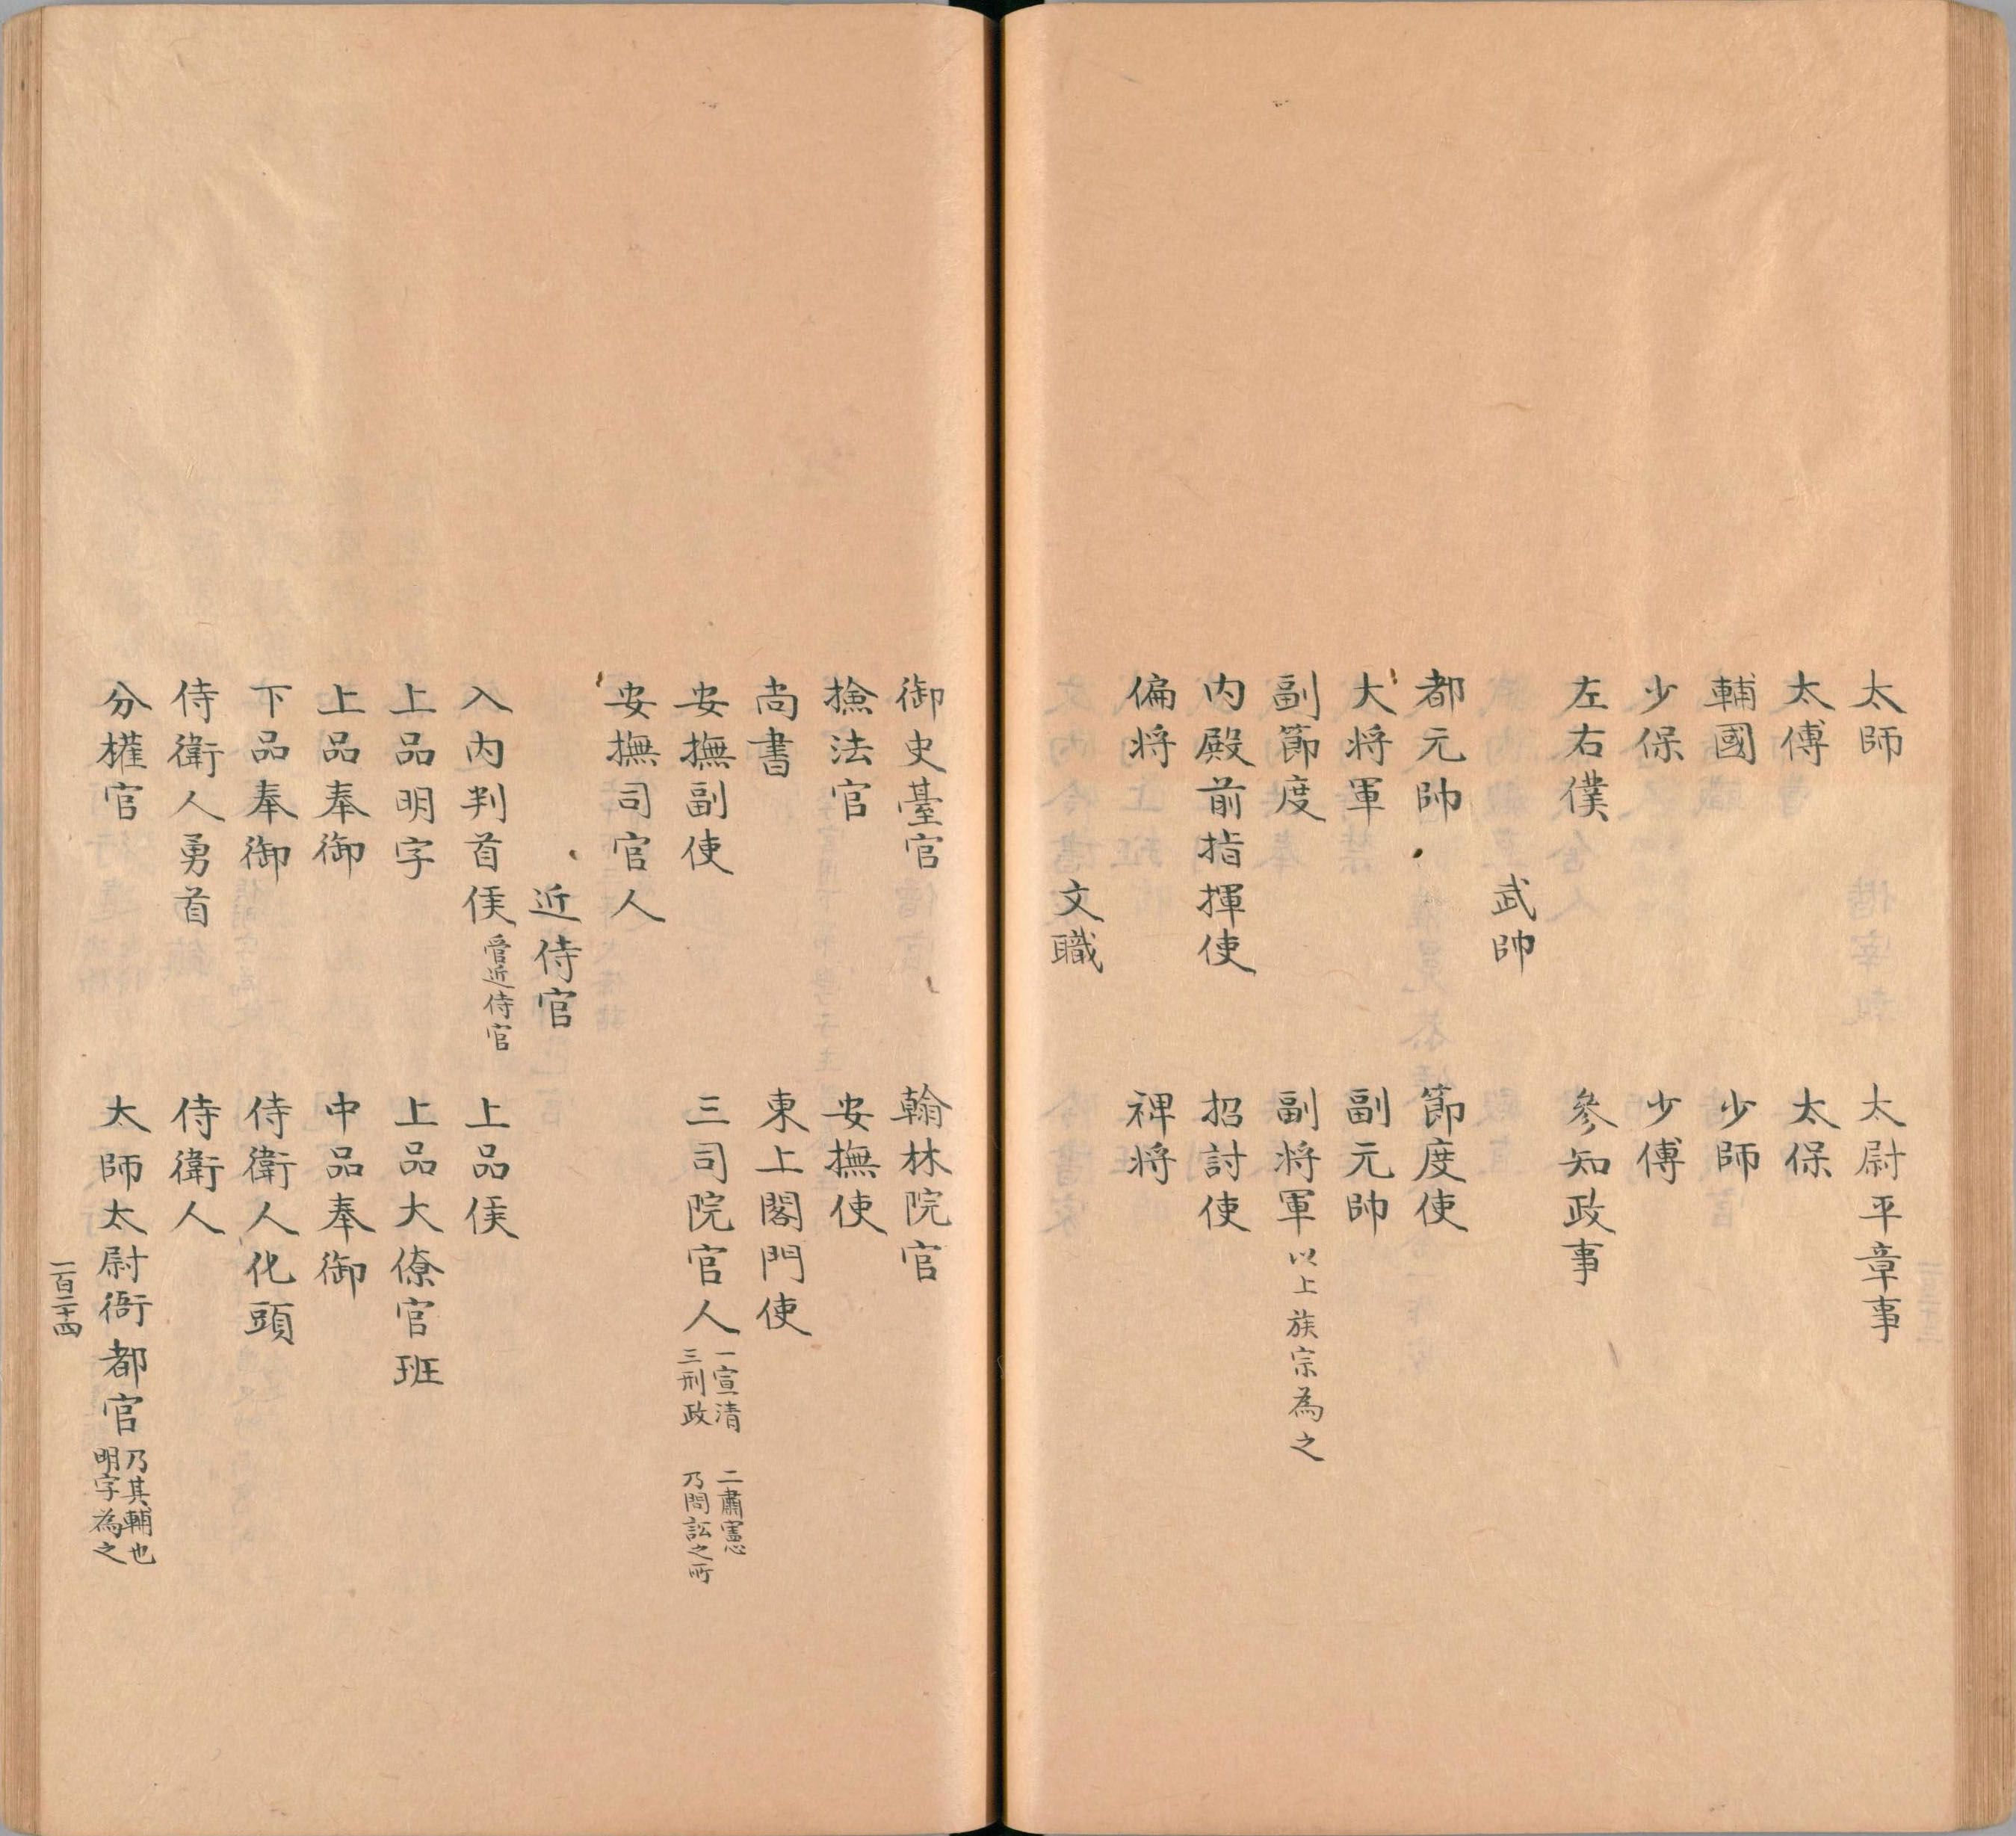 太師 太尉平章事
太傅 太保
輔國 少師
少保 少傅
左右僕 參知政事
武帥
都元帥 節度使
大將軍 副元帥
副節度 副將軍以上族宗為之
内殿前指揮使 招討使
偏將 裨將
文職
御史臺官 翰林院官
撿法官 安撫使
尚書 東上閤門使
安撫副使 三司院官人一宣清 二肅憲
三刑政 乃問訟之所
安撫司官人
近侍官
入內判首侯管近侍官 上品侯
上品明字 上品大僚官班
上品奉御 中品奉御
下品奉御 侍衛人化頭
侍衛人勇首 侍衛人
分權官 太師太尉衙都官乃其輔也
明字為之
一百二十四